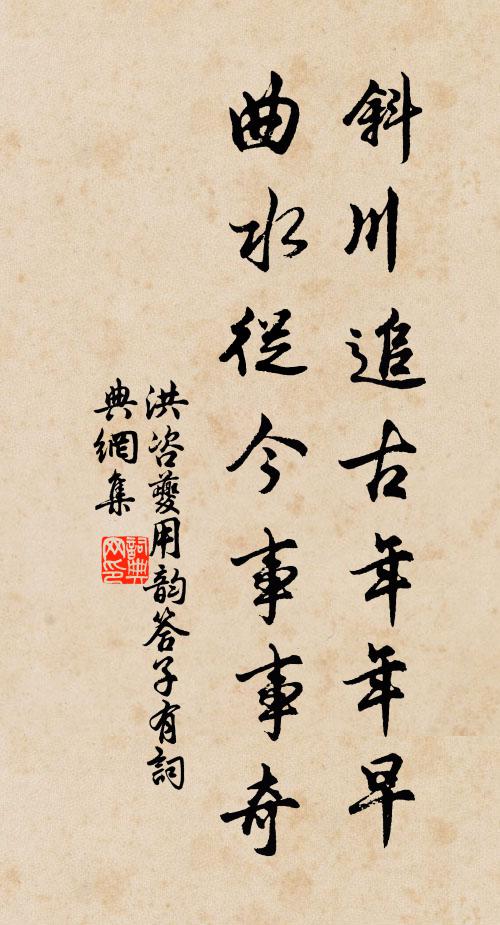 斜川追古年年早
曲水從今事事奇
洪咨夔用韵答子有詞
典網集
詞典網印